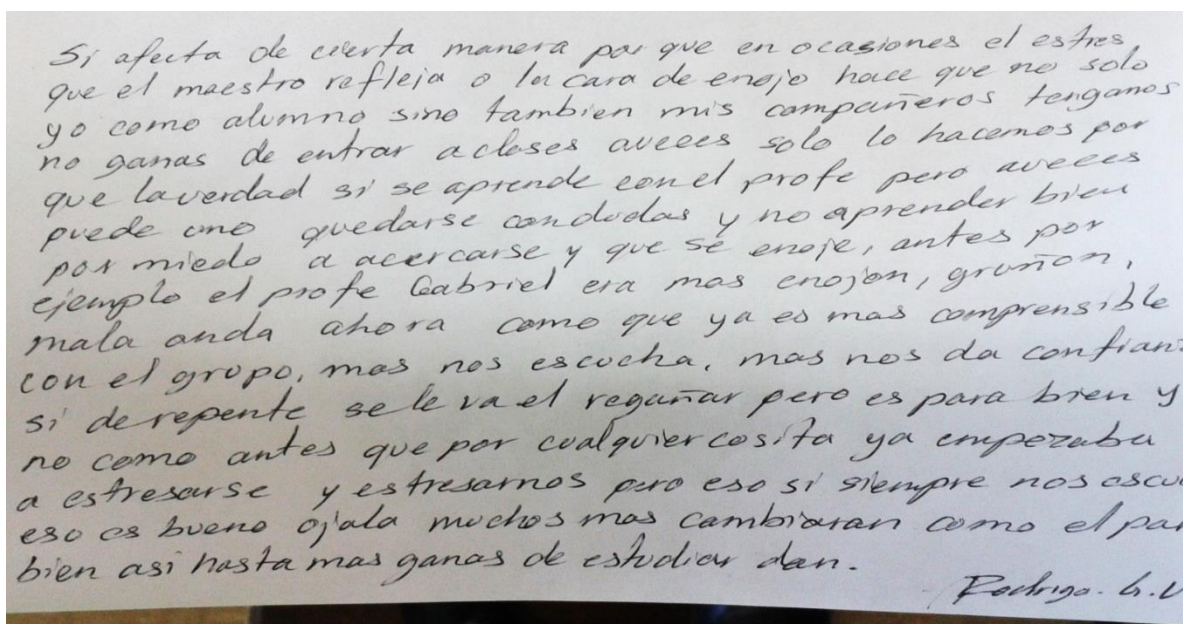 Si afecta de cierta manera por que en ocasiones el estres
que el maestro refleja o la cara de enojo hace que no solo
yo como alumno sino tambien mis compañeros tengamos
no ganas de entrar a clases aveces solo lo hacemos por
que la verdad si se aprende con el profe pero aveces
puede uno quedarse con dudas y no aprender bien
por miedo a acercarse y que se enoje, antes por
ejemplo el profe Gabriel era mas enojon, gruñon,
mala onda ahora como que ya es mas comprensible
con el grupo, mas nos escucha, mas nos da confian
si de repente se le va el regañar pero es para bien y
no como antes que por cualquier cosita ya empezaba
a estresarse y estresarnos pero eso si siempre nos escu
eso es bueno ojala muchos mas cambiaran como el par
bien asi hasta mas ganas de estudiar dan.
Rodrigo. G.V